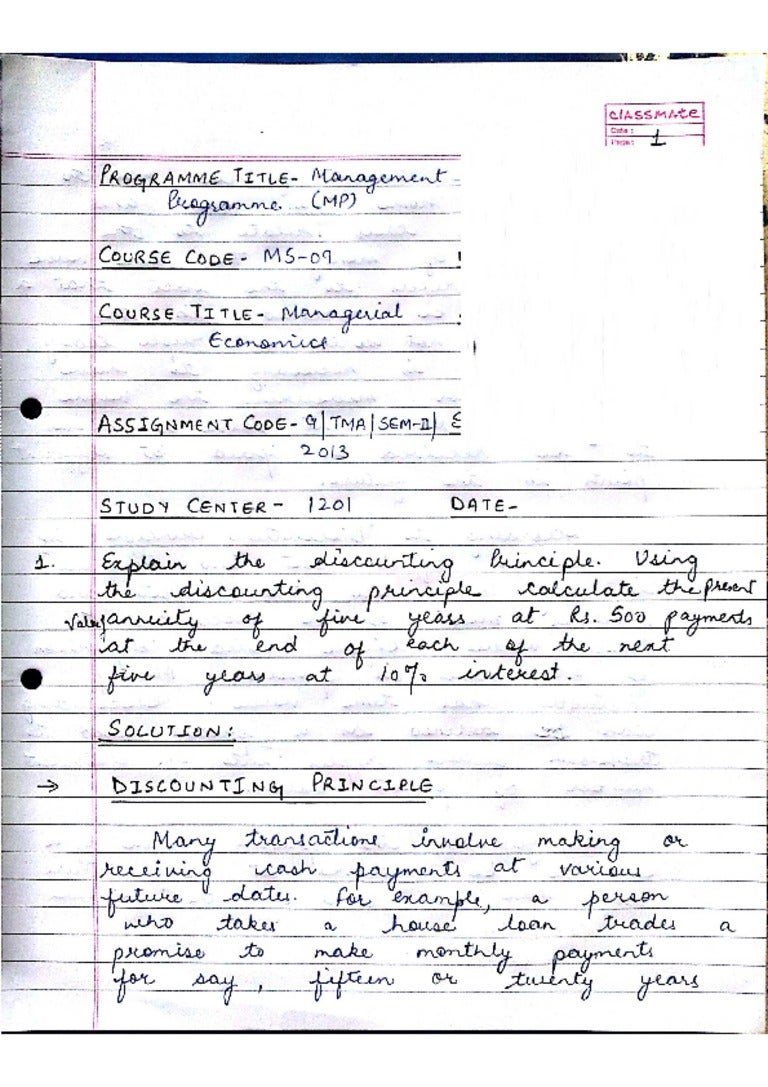 CLASSMATE
Date :
Page : 1
PROGRAMME TITLE- Management
Programme (MP)
COURSE CODE- MS-09
COURSE TITLE- Managerial
Economics
ASSIGNMENT CODE- 9|TMA|SEM-II|
2013
STUDY CENTER- 1201 DATE-
1. Explain the discounting Principle. Using
the discounting principle calculate the present
value annuity of five years at Rs. 500 payments
at the end of each of the next
five years at 10% interest.
SOLUTION:
→ DISCOUNTING PRINCIPLE
Many transactions involve making or
receiving cash payments at various
future dates. For example, a person
who takes a house loan trades a
promise to make monthly payments
for say, fifteen or twenty years